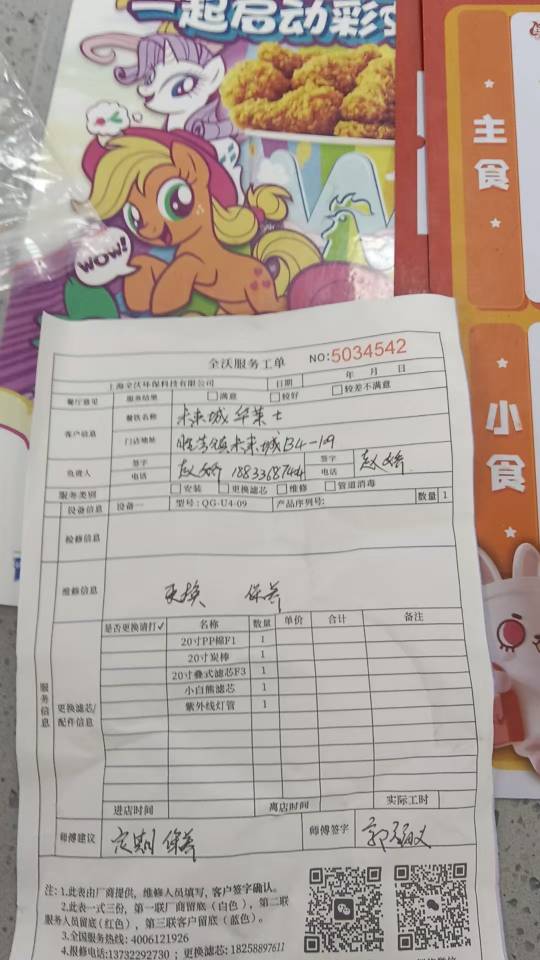 一起启动彩
WOW!
主食
小食
全沃服务工单
NO:5034542
上海全沃环保科技有限公司 日期 年 月 日
餐厅意见 服务结果 满意 较好 较差不满意
客户信息 餐铁名称 未来城华莱士
门店地址 未来城B4-109
负责人 签字 电话 赵娇 签字 电话 赵娇
服务类别 安装 更换滤芯 维修 管道消毒
设备信息 设备一 型号:QG-U4-09 产品序列号: 数量 1
检修信息
维修信息 更换 保养
服务信息
更换滤芯/配件信息
是否更换请打✓ 名称 数量 单价 合计 备注
20寸PP棉F1 1
20寸炭棒 1
20寸叠式滤芯F3 1
小白熊滤芯 1
紫外线灯管 1
进店时间 离店时间 实际工时
师傅建议 定期保养 师傅签字
注: 1.此表由厂商提供，维修人员填写, 客户签字确认。
2.此表一式三份，第一联厂商留底（白色），第二联
服务人员留底(红色），第三联客户留底（蓝色）。
3.全国服务热线: 4006121926
4.报修电话:13732292730 ; 更换滤芯: 18258897611